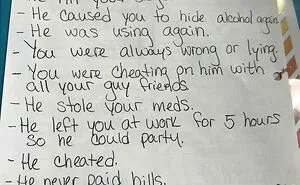 - He caused you to hide alcohol again.
- He was using again.
- You were always wrong or lying.
- You were cheating on him with
all your guy friends.
- He stole your meds.
- He left you at work for 5 hours
so he could party.
- He cheated.
- He never paid bills.